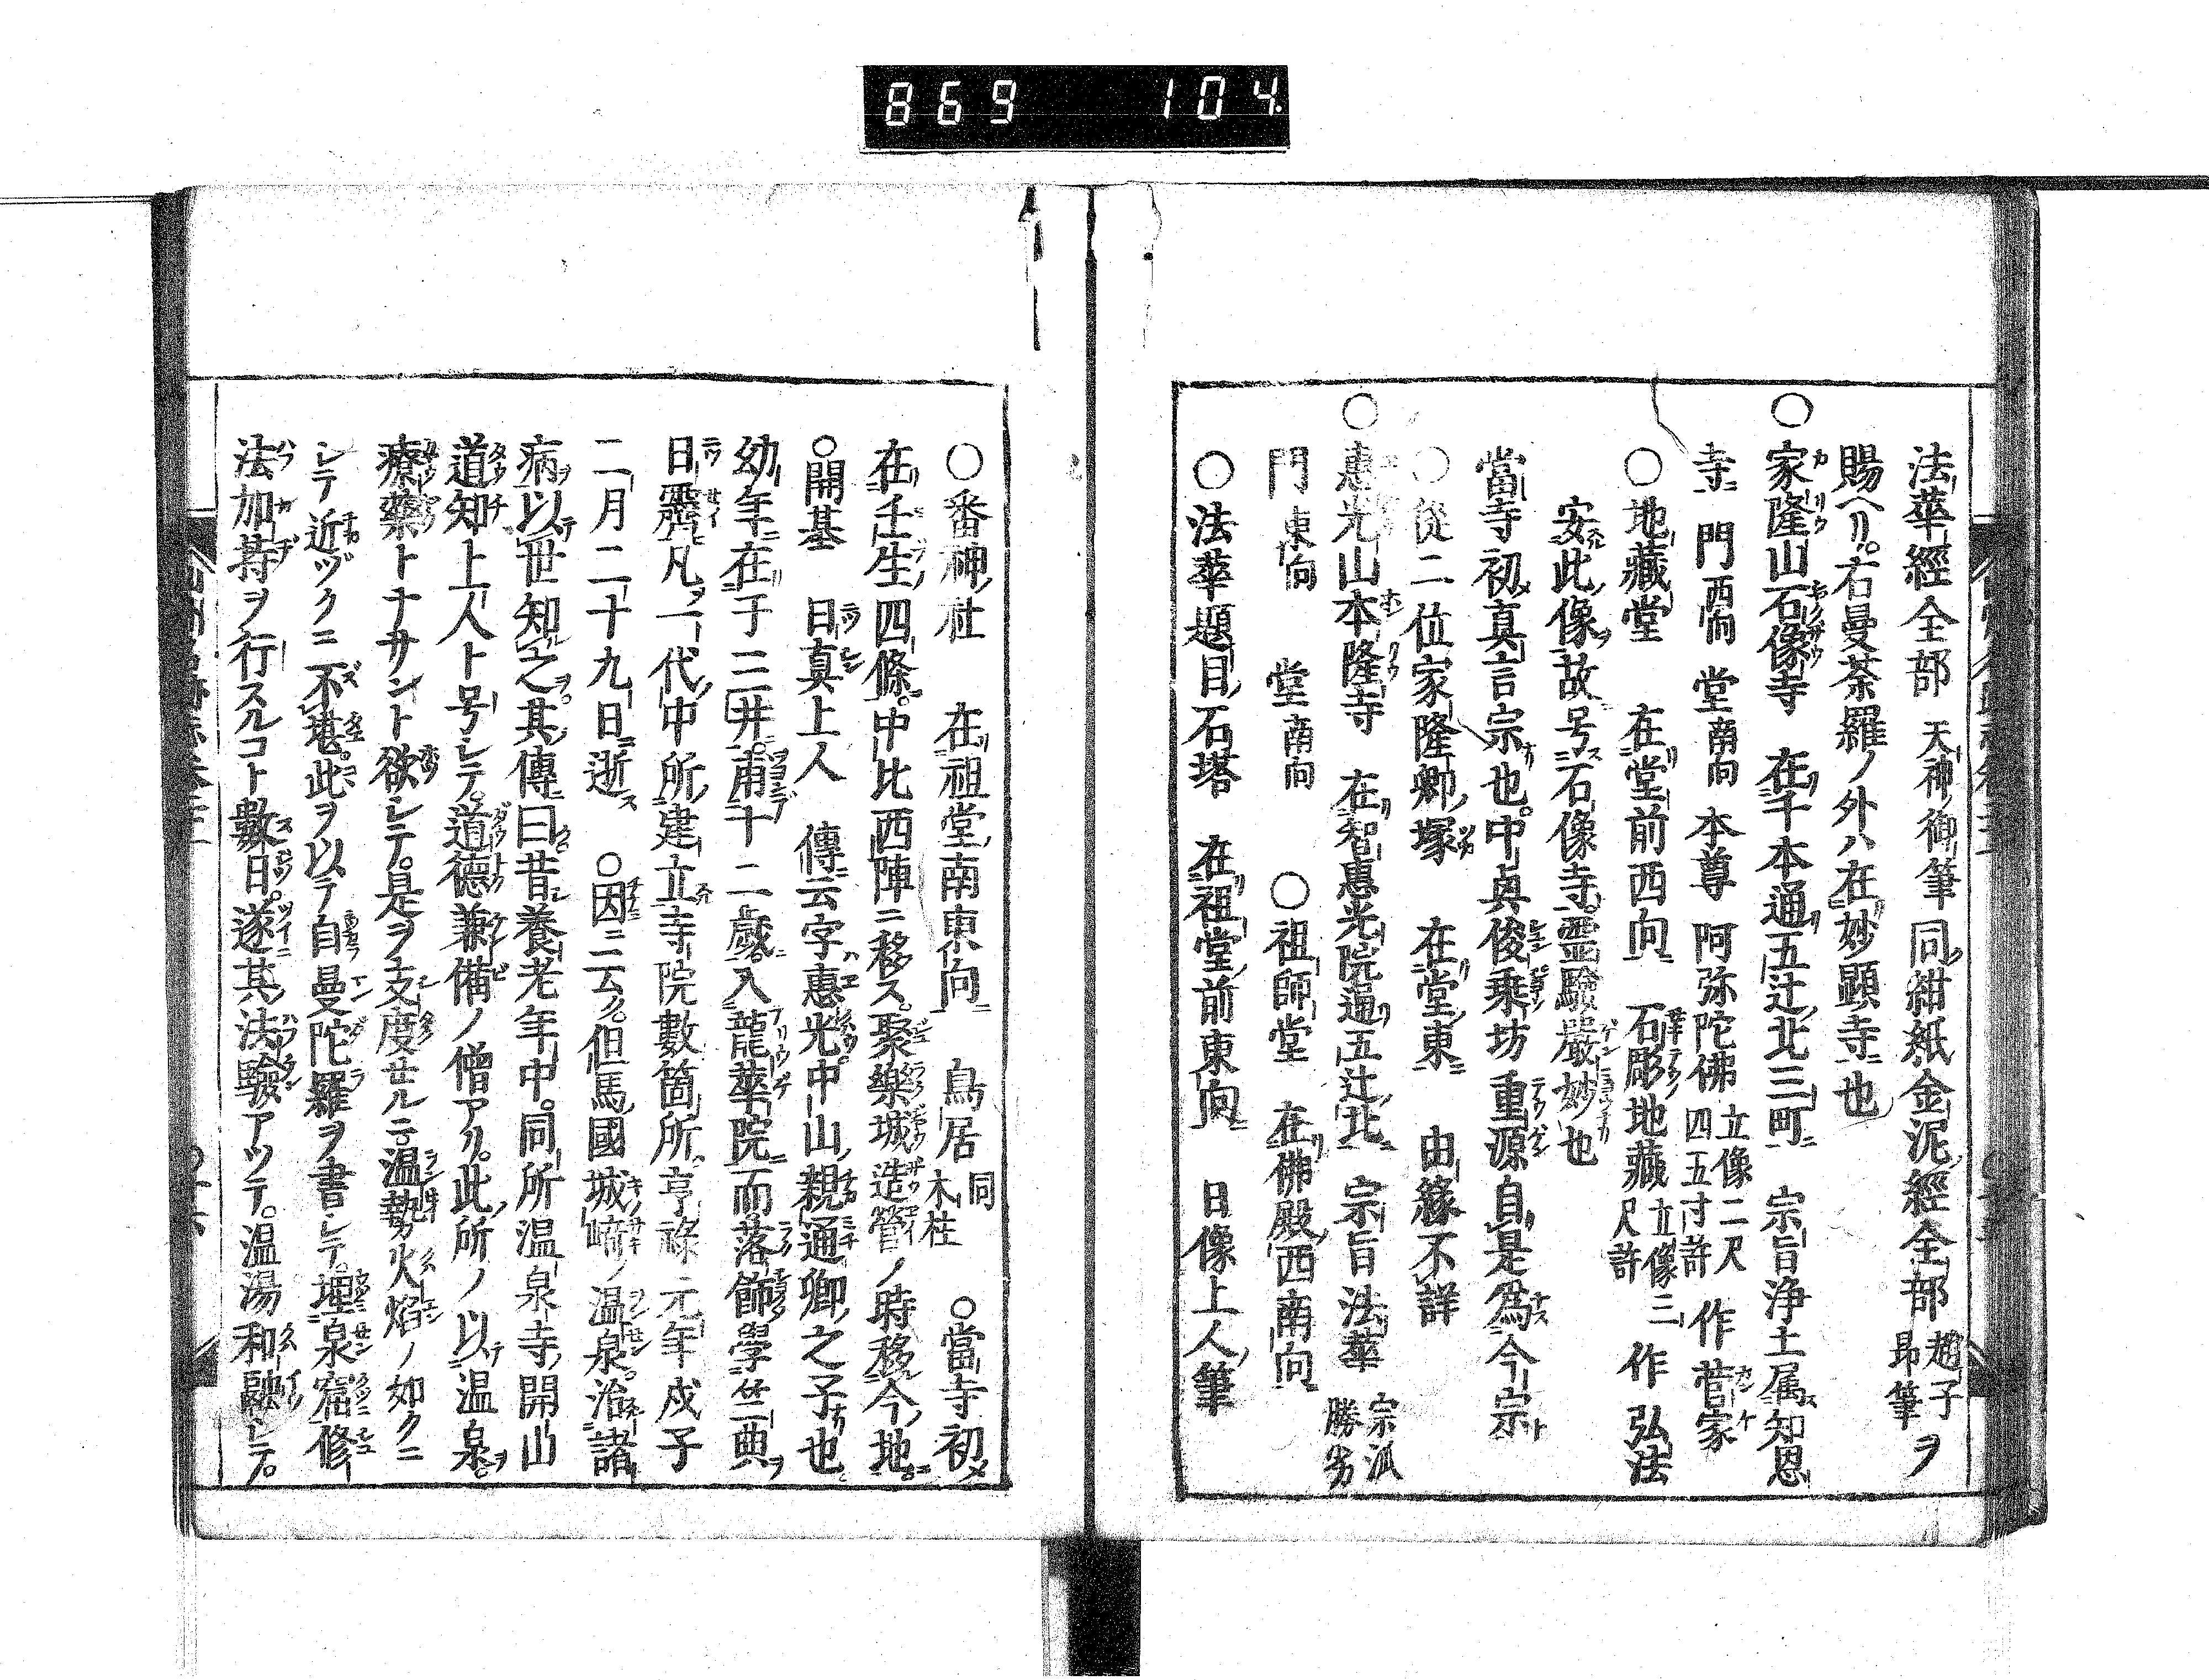 869 104
法華經全部 天神御筆 同紺紙金泥經全部 趙子昂筆ヲ
賜ヘリ。右曼荼羅ノ外ハ在妙顕寺也
○家隆山石像寺 在千本通五辻北三町 宗旨浄土属知恩
寺 門西向 堂南向 本尊 阿弥陀佛 立像二尺四五寸許 作 菅家
○地藏堂 在堂前西向 石彫地藏 立像三尺許 作 弘法
安此像故号石像寺。霊驗嚴妙也
當寺初真言宗也。中興俊乗坊重源自是為今宗
○從二位家隆卿塚 在堂東 由緣不詳
○惠光山本隆寺 在智惠光院通五辻北 宗旨法華 宗派勝劣
門東向 堂南向 ○祖師堂 在佛殿西南向
○法華題目石塔 在祖堂前東向 日像上人筆
○番神社 在祖堂南東向 鳥居 同木柱 ○當寺初メ
在壬生四條。中比西陣ニ移ス。聚樂城造營ノ時移今地。
○開基 日真上人 傳云字惠光。中山親通卿之子也。
幼年在于三井。甫十二歳。入龍華院而落飾學竺典
日霽凡一代中所建立寺院數箇所。享祿元年戊子
二月二十九日逝 ○因ニ云。但馬國城﨑ノ温泉。治諸
病以世知之。其傳曰昔養老年中。同所温泉寺開山
道知上人ト号シテ。道德兼備ノ僧アリ。此所ノ以温泉。
療藥トナサント欲シテ。是ヲ支度セルニ温勢火焰ノ如クニ
シテ近ヅクニ不堪。此ヲ以テ自曼陀羅ヲ書シテ。埋泉窟修
法加持ヲ行スルコト數日。遂其法驗アツテ。温湯和融シテ。